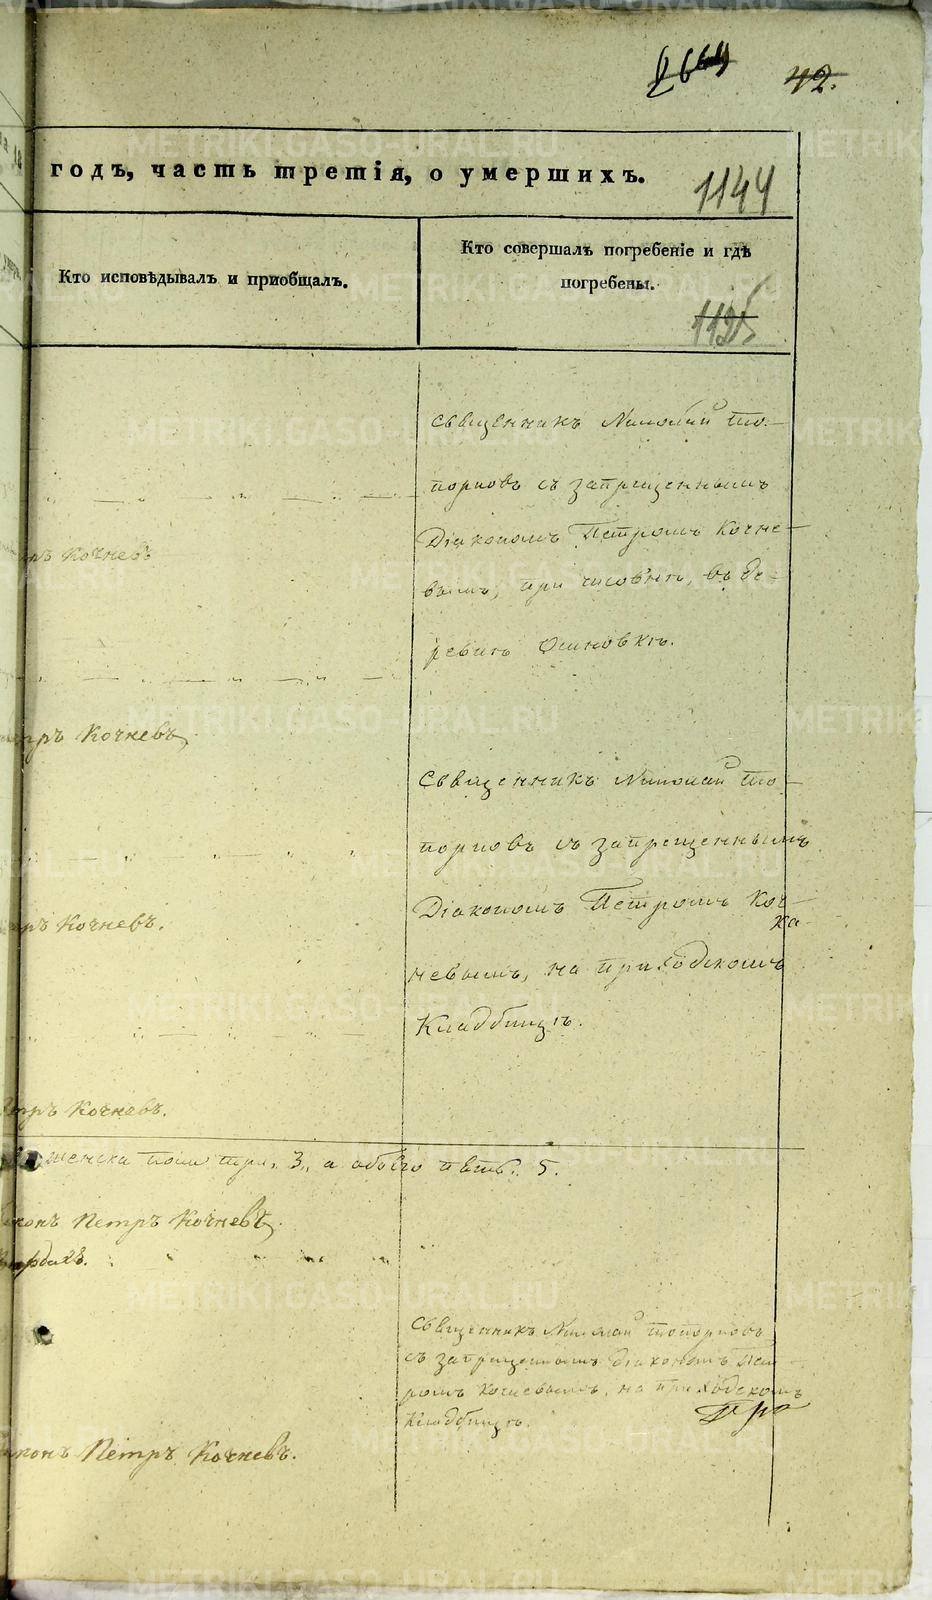 42.
годъ, часть третія, о умершихъ.
1144
Кто исповѣдывалъ и приобщалъ.
Кто совершалъ погребеніе и гдѣ
погребены.
1125
Священникъ Николай То-
порковъ съ запрещеннымъ
Діакономъ Петромъ Кочне-
вымъ, при часовнѣ, въ де-
ревнѣ Осиновкѣ.
Кочневъ
Петръ Кочневъ,
Священникъ Николай То-
порковъ съ запрещеннымъ
Діакономъ Петромъ Коч-
невымъ, на приходскомъ
Кладбищѣ.
Кочневъ.
Петръ Кочневъ.
женска пола три. 3., а обоего пять. 5.
Діаконъ Петръ Кочневъ,
Священникъ Николай Топорковъ
съ запрещеннымъ діакономъ Пет-
ромъ Кочневымъ, на приходскомъ
Кладбищѣ.
Діаконъ Петръ Кочневъ.
METRIKI.GASO-URAL.RU